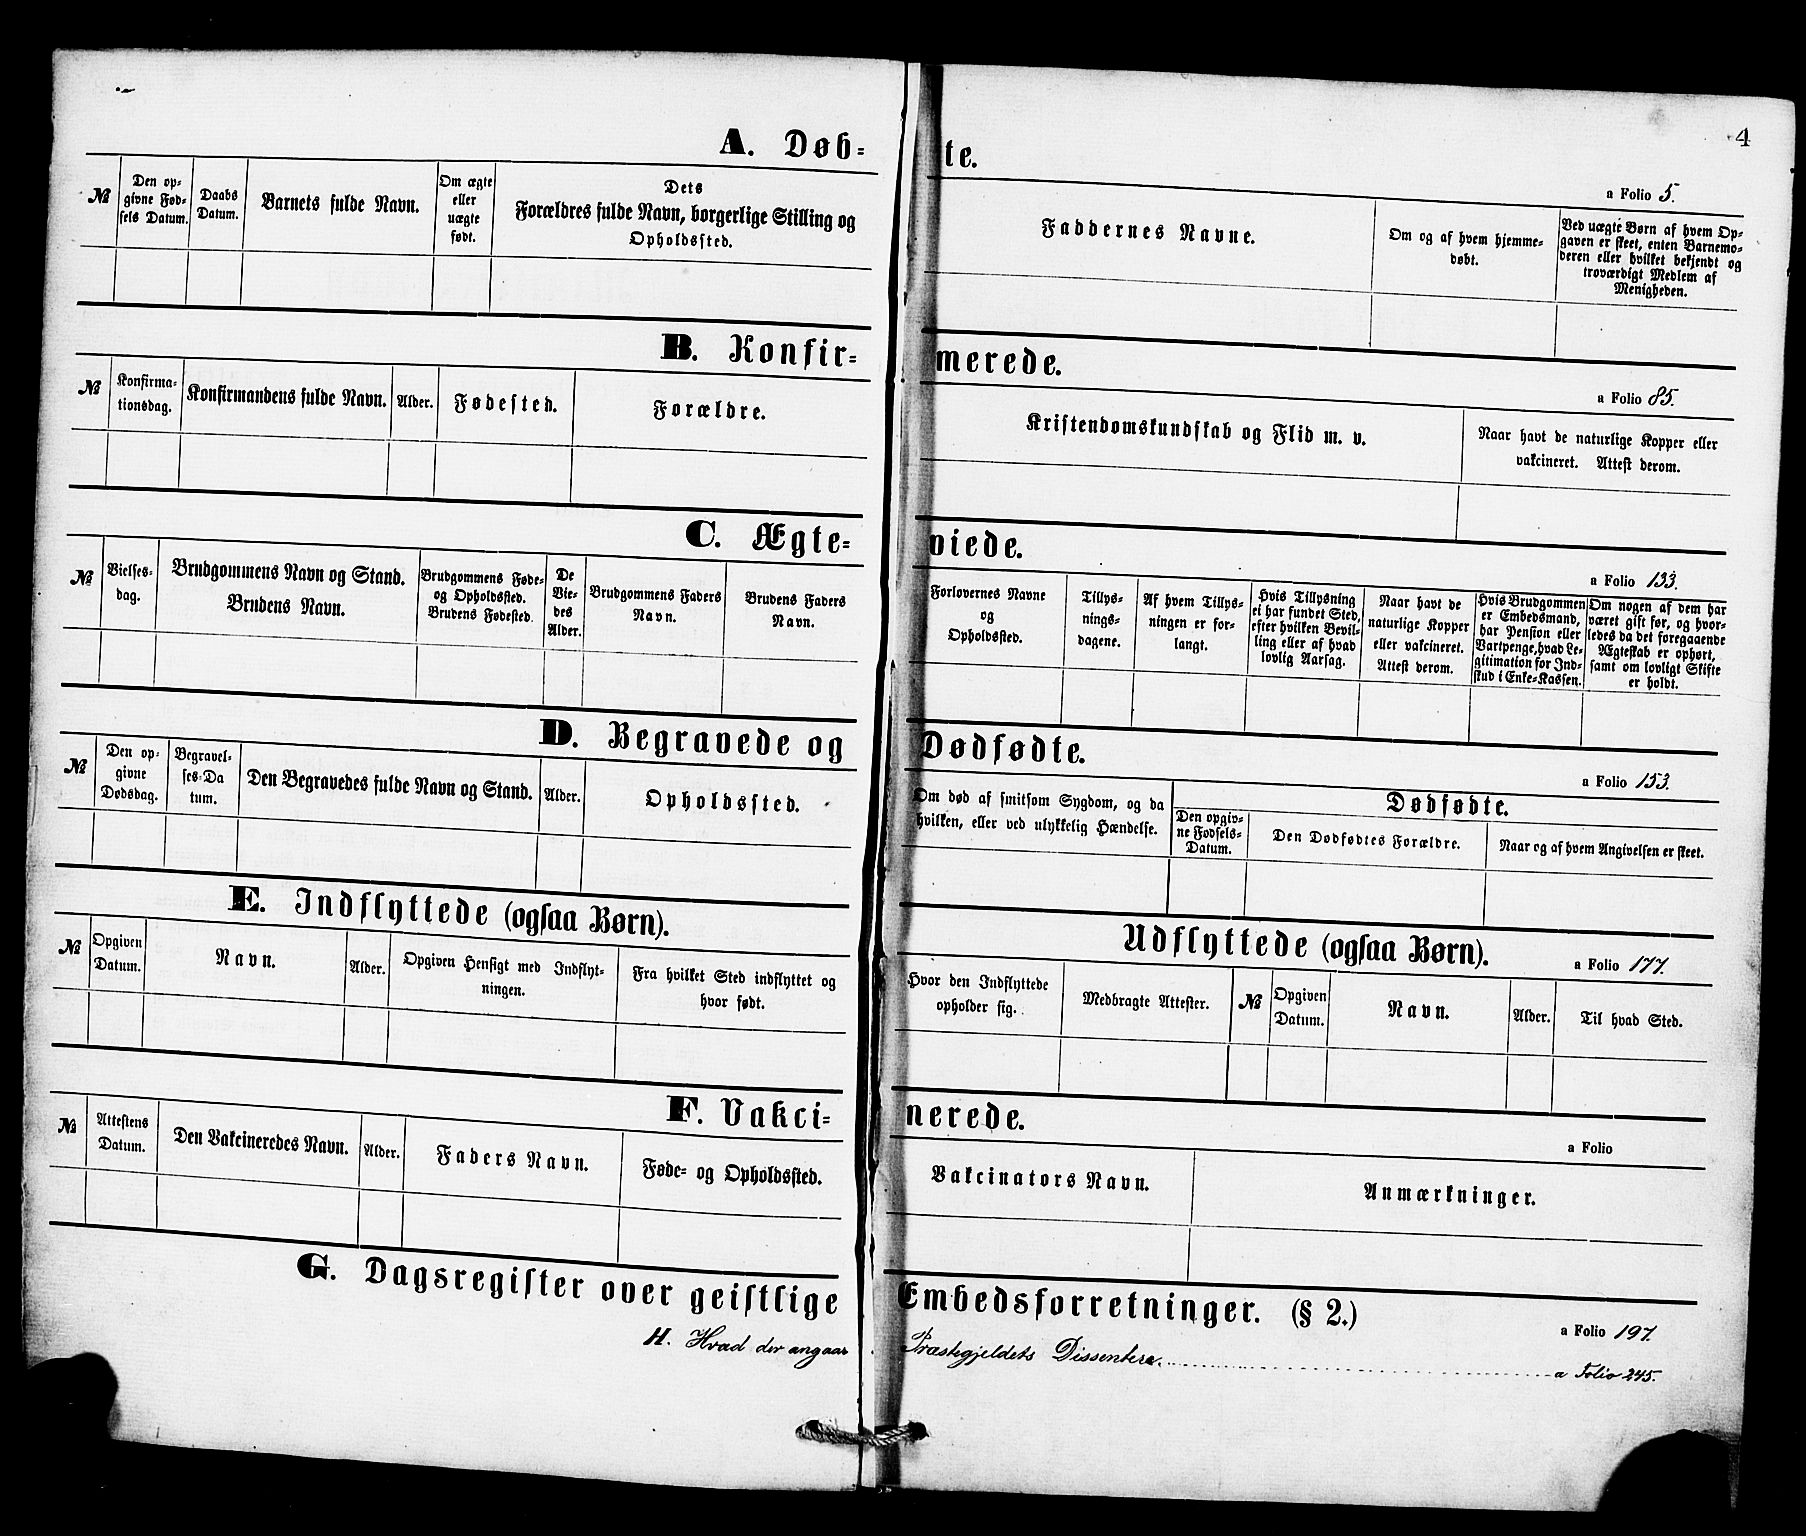 4
A. Døb-te.
a Folio 5.
№
Den op-
givne Fød-
sels Datum.
Daabs
Datum.
Barnets fulde Navn.
Om ægte
eller
uægte
født.
Dets
Forældres fulde Navn, borgerlige Stilling og
Opholdssted.
Faddernes Navne.
Om og af hvem hjemme-
døbt.
Ved uægte Børn af hvem Op-
gaven er skeet, enten Barnemo-
deren eller hvilket bekjendt og
troværdigt Medlem af
Menigheden.
B. Konfir-merede.
a Folio 85.
№
Konfirma-
tionsdag.
Konfirmandens fulde Navn.
Alder.
Fødested.
Forældre.
Kristendomskundskab og Flid m. v.
Naar havt de naturlige Kopper eller
vakcineret. Attest derom.
C. Ægte-viede.
a Folio 133.
№
Vielses-
dag.
Brudgommens Navn og Stand.
Brudens Navn.
Brudgommens Føde-
og Opholdssted.
Brudens Fødested.
De
Vie-
des
Alder.
Brudgommens Faders
Navn.
Brudens Faders
Navn.
Forlovernes Navne
og
Opholdssted.
Tillys-
nings-
dagene.
Af hvem Tillys-
ningen er for-
langt.
Hvis Tillysning
ei har fundet Sted,
efter hvilken Bevil-
ling eller af hvad
lovlig Aarsag.
Naar havt de
naturlige Kopper
eller vakcineret.
Attest derom.
Hvis Brudgommen
er Embedsmand,
har Pension eller
Vartpenge, hvad Le-
gitimation for Ind-
skud i Enke-Kassen.
Om nogen af dem har
været gift før, og hvor-
ledes da det foregaaende
Ægteskab er ophørt,
samt om lovligt Skifte
er holdt.
D. Begravede og Dødfødte.
a Folio 153.
№
Den op-
givne
Dødsdag.
Begravel-
ses-Da
tum.
Den Begravedes fulde Navn og Stand.
Alder.
Opholdssted.
Om død af smitsom Sygdom, og da
hvilken, eller ved ulykkelig Hændelse.
Dødfødte.
Den opgiv-
ne Fødsels-
Datum.
Den Dødfødtes Forældre.
Naar og af hvem Angivelsen er skeet.
E. Indflyttede (ogsaa Børn).
Udflyttede (ogsaa Børn).
a Folio 177.
№
Opgiven
Datum.
Navn.
Alder.
Opgiven Hensigt med Indflyt-
ningen.
Fra hvilket Sted indflyttet og
hvor født.
Hvor den Indflyttede
opholder sig.
Medbragte Attester.
№
Opgiven
Datum.
Navn.
Alder.
Til hvad Sted.
F. Vakci-nerede.
a Folio
№
Attestens
Datum.
Den Vakcineredes Navn.
Alder.
Faders Navn.
Føde- og Opholdssted.
Vakcinators Navn.
Anmærkninger.
G. Dagsregister over geistlige Embedsforretninger. (§ 2.)
a Folio 197.
H. Hvad der angaar Præstegjeldets Dissentere. a Folio 245.